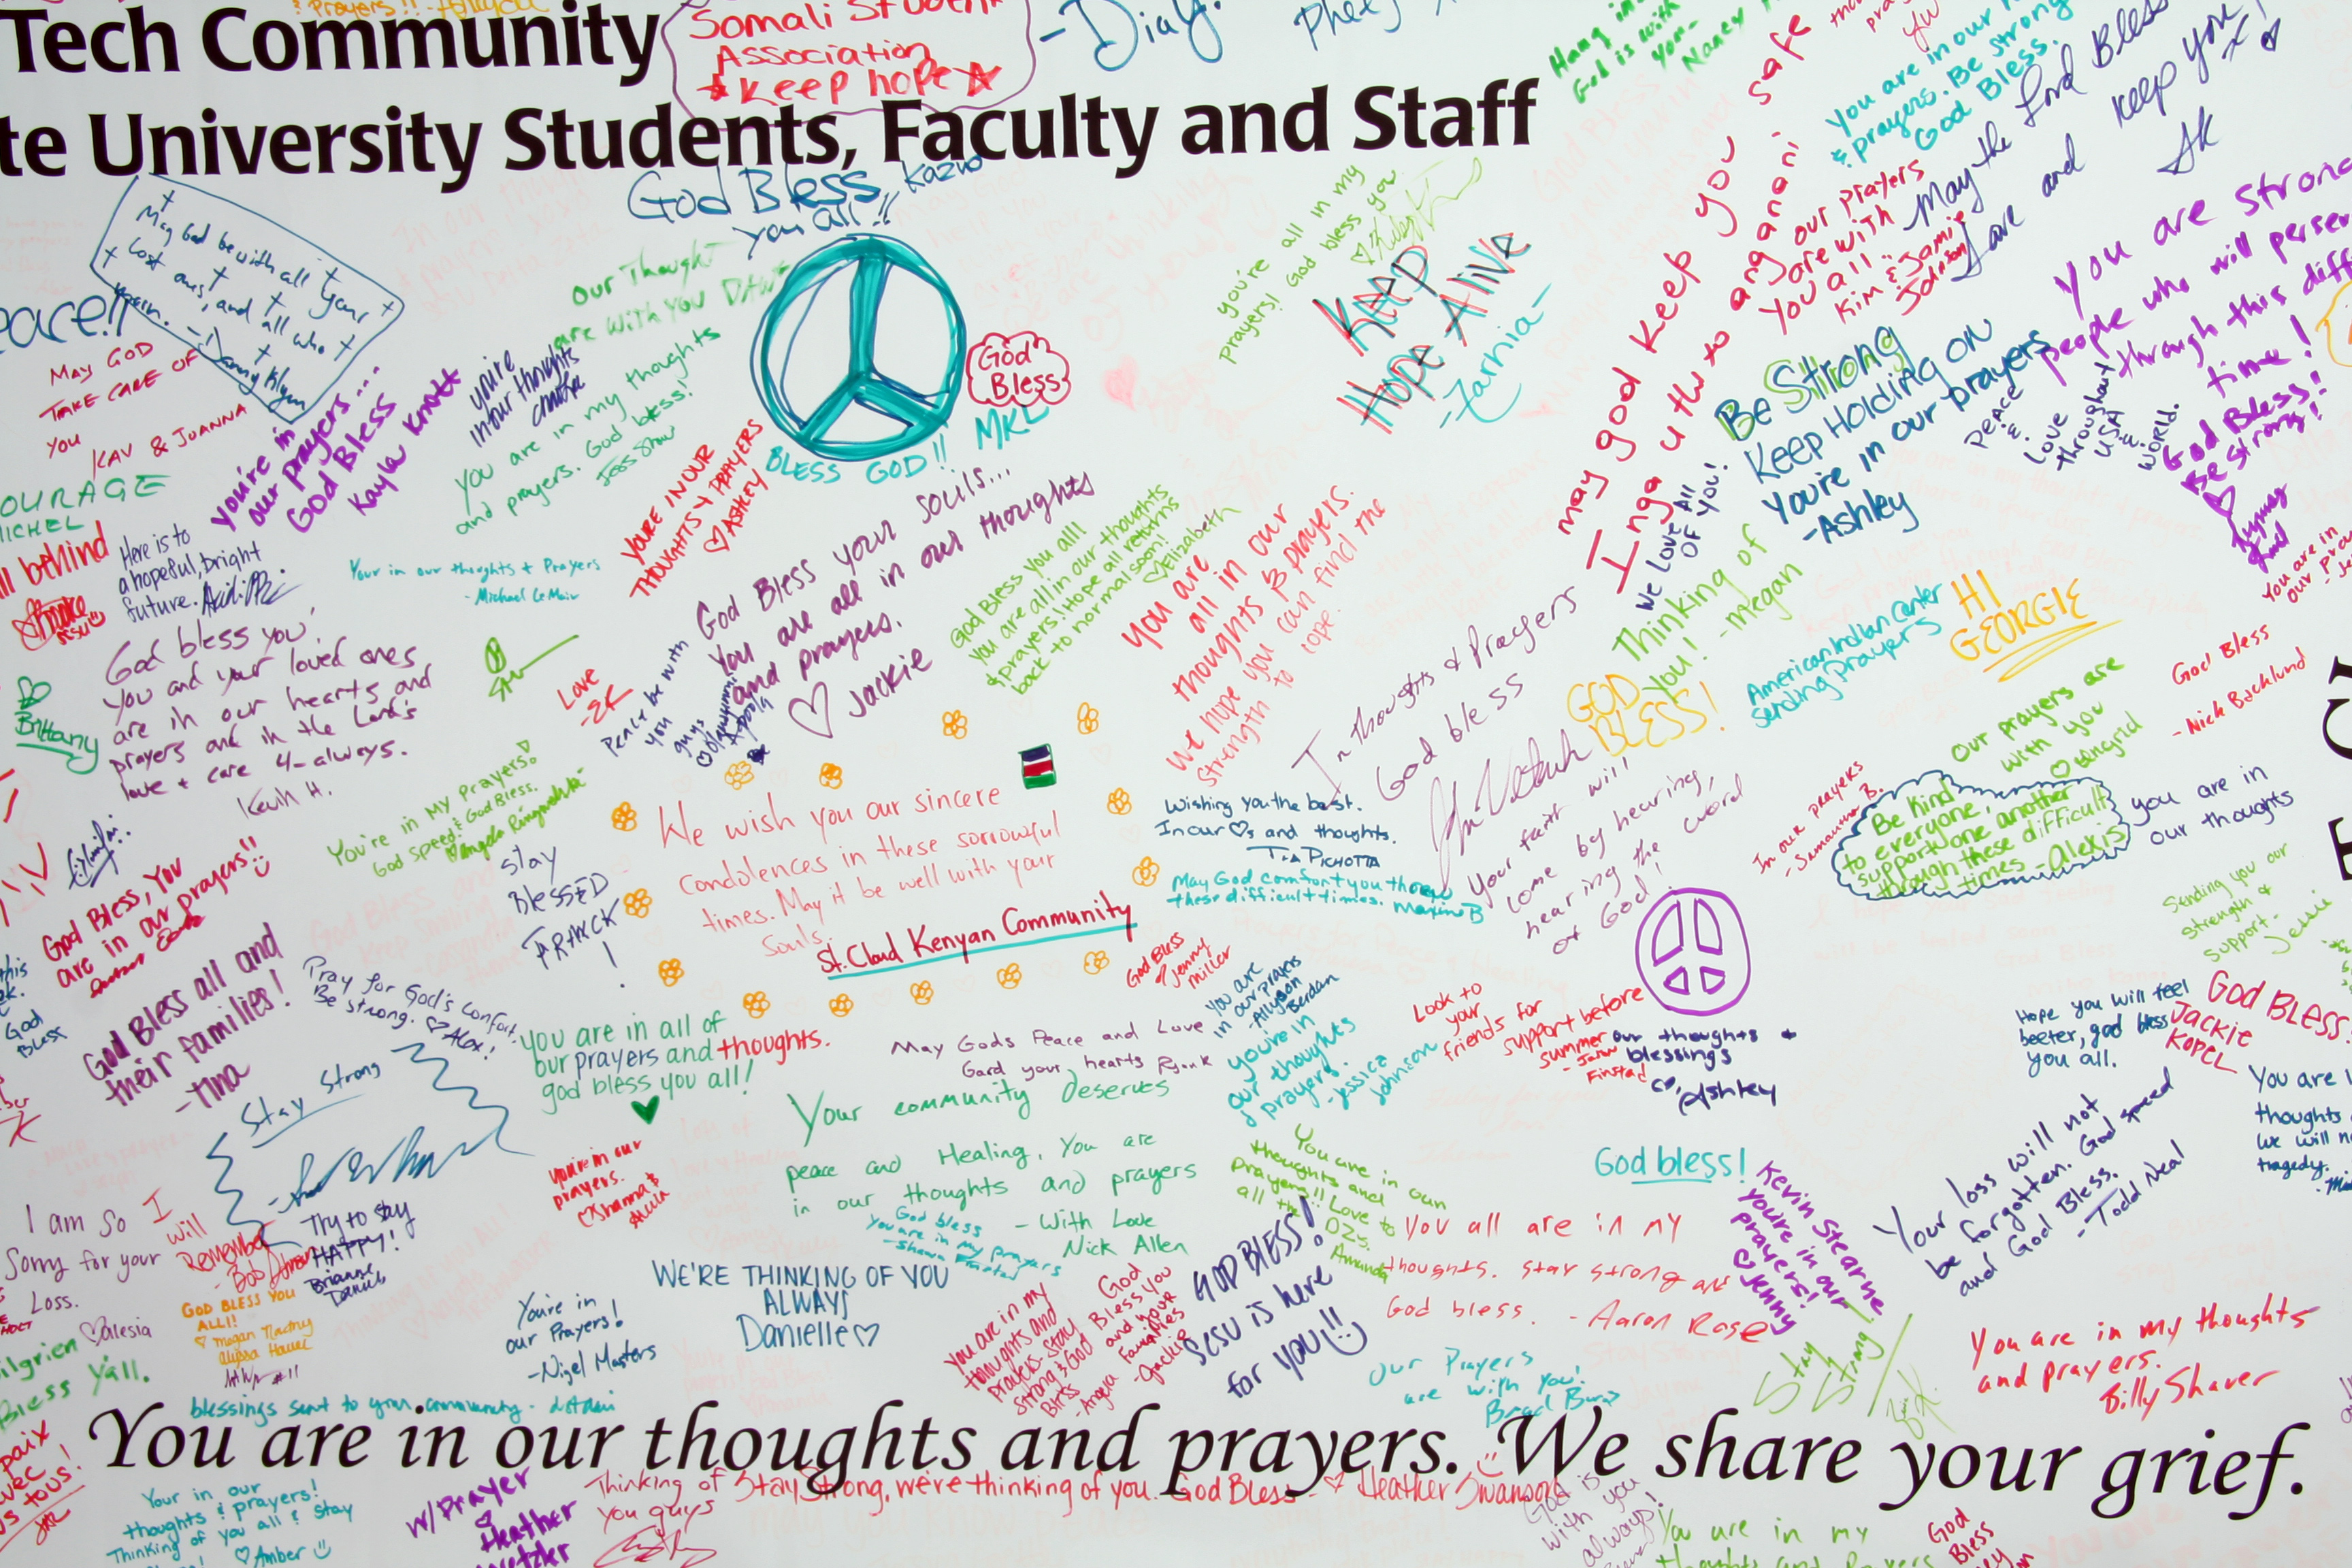 Tech Community
te University Students, Faculty and Staff
Somali Student
Association
Keep hope
God is with
you-
Nancy
You are in our
& prayers. Be strong
God Bless.
May the Lord Bless
and keep you!
God Bless Kazuo
you all!!
May God be with all your
lost ones, and all who
mourn. - Danny Klyn
eace!!
May God
Take care of
you
Kav & Joanna
you're in
our prayers....
God Bless
Kayla Knott
you're
in our thoughts
Our Thought
are with you
you are in my thoughts
and prayers. God bless!
God
Bless
BLESS GOD!! MKL
YOU'RE IN OUR
THOUGHTS & PRAYERS
ASHLEY
you're all in my
prayers! God bless you
KEEP
Hope Alive
-Zarnia-
may good keep you safe
Inga u thu to ang anoni
our prayers
are with
you all
Kim & Jami
Johnson
Be Strong
Keep Holding on
You're in our prayers
-Ashley
Peace
&
Love
throughout
USA
&
World.
You are strong
people who will perser
through this diff
time!
God Bless!
Be strong!
We love all
of you!
OURAGE
ICHEL
ll behind
Here is to
a hopeful, bright
future.
Your in our thoughts + Prayers
- Michael LeMair
God bless you,
you and your loved ones
are in our hearts and
prayers and in the Lord's
love + care 4-always.
Keith H.
Brittany
Love
-EK
Peace be with
you
guys
God Bless your souls...
You are all in our thoughts
and prayers.
Jackie
God Bless you all!
you are all in our thoughts
& prayers! Hope all returns
back to normal soon!
Elizabeth
you are
all in our
thoughts & prayers.
We hope you can find the
strength to cope.
In thoughts & Prayers
God bless
Thinking of
you! -Megan
GOD
BLESS!
American Indian Center
sending Prayers
HI
GEORGIE
God Bless
- Nick Backlund
Our prayers are
with you
Ingrid
Be kind
to everyone,
support one another
through these difficult
times -Alexis
In our prayers
- Samantha B.
you are in
our thoughts
Sending you our
strength &
support-
You're in My Prayers.
God speed & God Bless.
We wish you our sincere
Condolences in these sorrowful
times. May it be well with your
Souls.
St. Cloud Kenyan Community
Wishing you the best.
In our ♡s and thoughts.
Tia Pichotta
May God comfort you through
these difficult times. Maxine B
Your faith will
come by hearing,
hearing the word
of God!
stay
BlessED
God Bless, You
are in our prayers!!
God Bless all and
their families!
-Tina
Pray for God's comfort.
Be strong. ♡ Alex!
Stay Strong
you are in all of
our prayers and thoughts.
god bless you all!
God Bless
Jenny
Miller
You are
in our prayers
-Allyson
Berdan
May Gods Peace and Love
Gard your hearts
you're in
our thoughts
& prayers.
-Jessica
Johnson
Look to
your
friends for
support before
summer
- John
Finstad
our thoughts +
blessings
♡, Ashley
Hope you will feel
beeter, god bless
you all.
God BLESS
Jackie
Kopel
Your community deserves
peace and Healing. You are
in our thoughts and prayers
- With Love
Nick Allen
you're in our
prayers.
God bless
you are in my prayers
You are in our
thoughts and
prayers!! Love to
all the DZs.
Amanda
God bless!
Kevin Stearne
you're in our
prayers!
♡Jenny
Your loss will not
be forgotten. God speed
and God Bless.
-Todd Neal
You are i
thoughts
We will n
tragedy.
I am so
Sorry for your
Loss.
♡alesia
I
will
Remember
-Bob
Try to stay
HAPPY!
Brianne
Daniels
GOD BLESS YOU
ALL!
Bless Y'all.
You're in
our Prayers!
-Nigel Masters
WE'RE THINKING OF YOU
ALWAYS
Danielle♡
you are in my
thoughts and
prayers- stay
strong & God
Bless
-Angela
God
Bless you
and your
Families
-Jackie
GOD BLESS!
Jesu is here
for you!!
You all are in my
thoughts. stay strong and
God bless. - Aaron Rose
Our Prayers
are with you!
Stay
Strong!
You are in my thoughts
and prayers.
Billy Shaver
blessings sent to your community-
You are in our thoughts and prayers. We share your grief.
paix
vec
tous!
Your in our
thoughts & prayers!
Thinking of you all & stay
♡Amber
w/Prayer
Heather
Thinking of
you guys
Stay Strong, we're thinking of you. God Bless - ♡ Heather Swanson
God is
with you
always!
You are in my
thoughts and Prayers
God
Bless